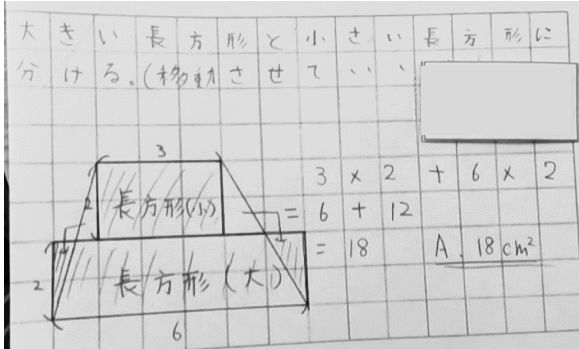 大きい長方形と小さい長方形に
分ける。(移動させていい
3
2
長方形(小)
長方形(大)
2
6
3 × 2 + 6 × 2
= 6 + 12
= 18 A. 18cm²